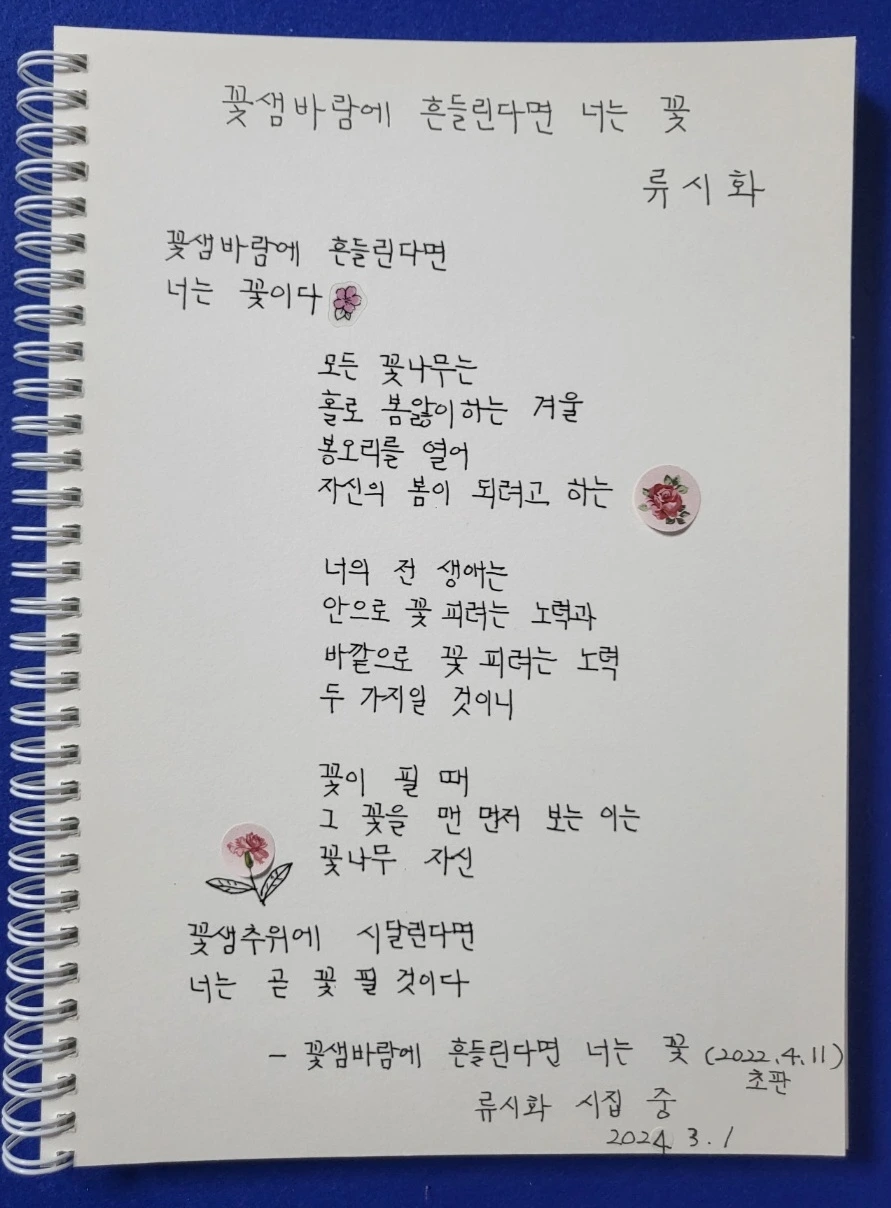 꽃샘바람에 흔들린다면 너는 꽃
류시화
꽃샘바람에 흔들린다면
너는 꽃이다
모든 꽃나무는
홀로 봄앓이하는 겨울
봉오리를 열어
자신의 봄이 되려고 하는
너의 전 생애는
안으로 꽃 피려는 노력과
바깥으로 꽃 피려는 노력
두 가지일 것이니
꽃이 필 때
그 꽃을 맨 먼저 보는 이는
꽃나무 자신
꽃샘추위에 시달린다면
너는 곧 꽃 필 것이다
- 꽃샘바람에 흔들린다면 너는 꽃 (2022.4.11)
초판
류시화 시집 중
2024 3. 1